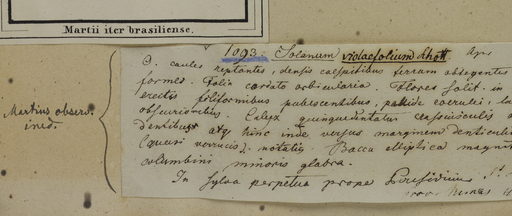 Martii iter brasiliense.
1093. Solanum violaefolium Schott. Apr.
caules reptantes, densis caespitibus terram obtegentes
formes. Folia cordato orbicularia. Flores solit. in
erectis filiformibus pubescentibus, pallide coerulei,
obscurioribus. Calyx quinquedentatus
dentibus atq hinc inde versus marginem denticulis
(quasi verrucis) notatis. Bacca elliptica magnit
columbini minoris glabra.
In Sylva perpetua prope
Martius observ.
ined.